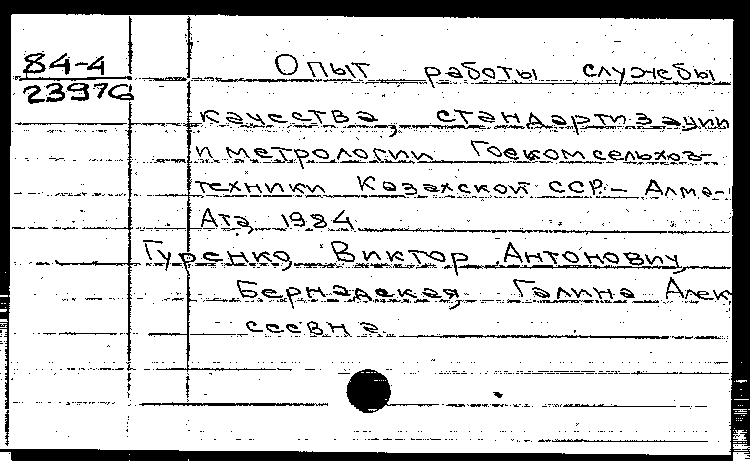 84-4
23976
Опыт работы службы
качества, стандартизации
и метрологии Госкомсельхоз-
техники Казахской ССР.- Алма-
Ата, 1984
Гуренко, Виктор Антонович,
Бернадская, Галина Алек
сеевна.